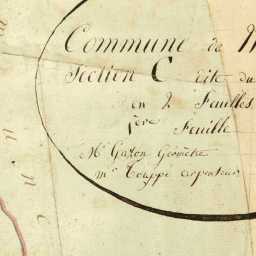 Commune de
Section C dite du
en 2 Feuilles
1ère Feuille
Mr Gazon Géomètre
mr Couppé arpenteur